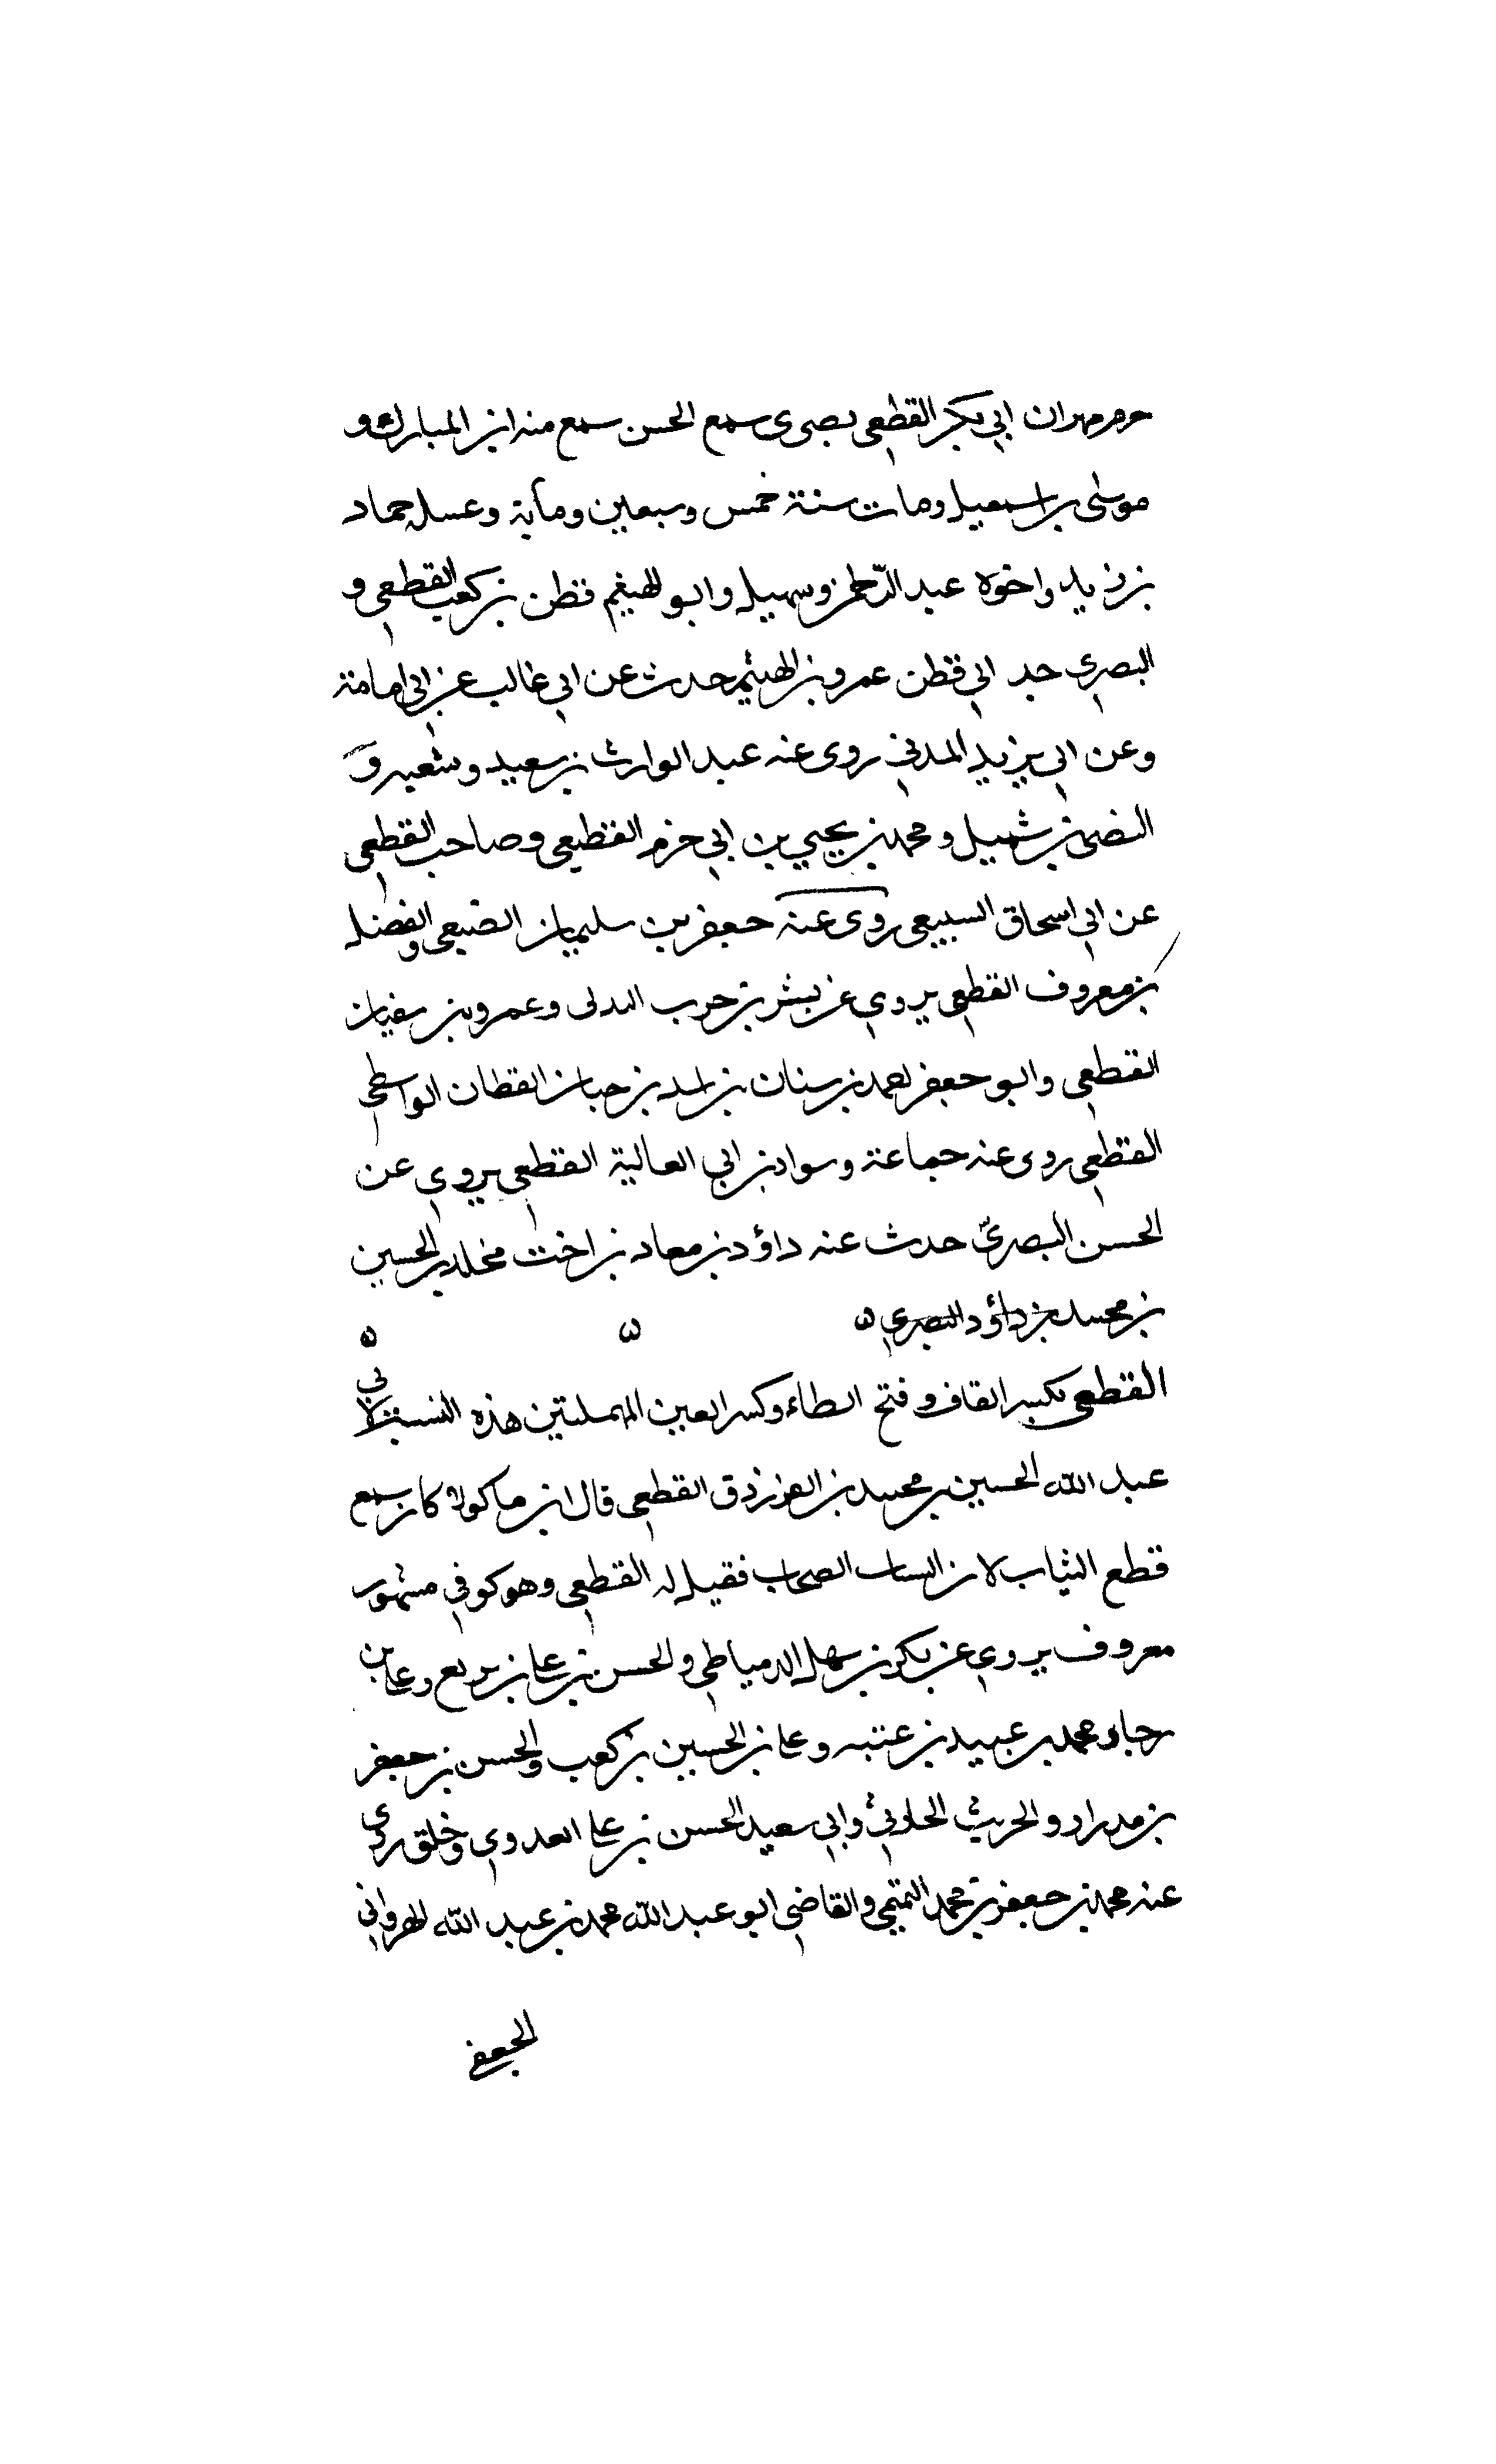 حزم مهران ابي بكر القطعي بصرى سمع الحسن سمع منه ابن المبارك و
موسى بن اسمعيل ومات سنة خمس وسبعين ومأية وغسله حماد
بن زيد واخوه عبد الرحمن وسهيل وابو الهيثم قطن بن كعب القطعي و
البصري جد ابي قطن عمرو بن الهيثم حدث عن ابي غالب عن ابي امامة
وعن ابي يزيد المدني روى عنه عبد الوارث بن سعيد وشعبه و
النضر بن شميل ومحمد بن يحيي بن ابي حزم القطيعي وصاحب القطعي
عن ابي اسحاق السبيعي روى عنه جعفر بن سليمان الضبعي والفضل
بن معروف القطعي يروي عن بشر بن حرب الندبى وعمرو بن سفيان
القطعي وابو جعفر احمد بن سنان بن اسد بن حبان القطان الواسطي
القطعي روى عنه جماعة وسواد بن ابي العالية القطعي يروي عن
الحسن البصري حدث عنه داؤد بن معاد بن اخت مخلد بن الحسين
بن محمد بن داؤد البصري ه ه ه
القطعي بكسر القاف وفتح الطاء وكسر العين المهملتين هذه النسبة لابي
عبد الله الحسين بن محمد بن الفرزدق القطعي قال ابن ماكولا كان يبيع
قطع الثياب لا من الثياب الصحاح فقيل له القطعي وهو كوفي مشهور
معروف يروي عن بكر بن سهل الدمياطي والحسن بن علي بن بزيع وعلي بن
رجاء ومحمد بن عبيد بن عتبه وعلي بن الحسين بن كعب والحسن بن جعفر
بن مدرار والحريث الحلوبي وابي سعيد الحسن بن علي العدوي وخلق روى
عنه محمد بن جعفر بن محمد التميمي والقاضي ابو عبد الله محمد بن عبد الله الهرواني
الجعفي